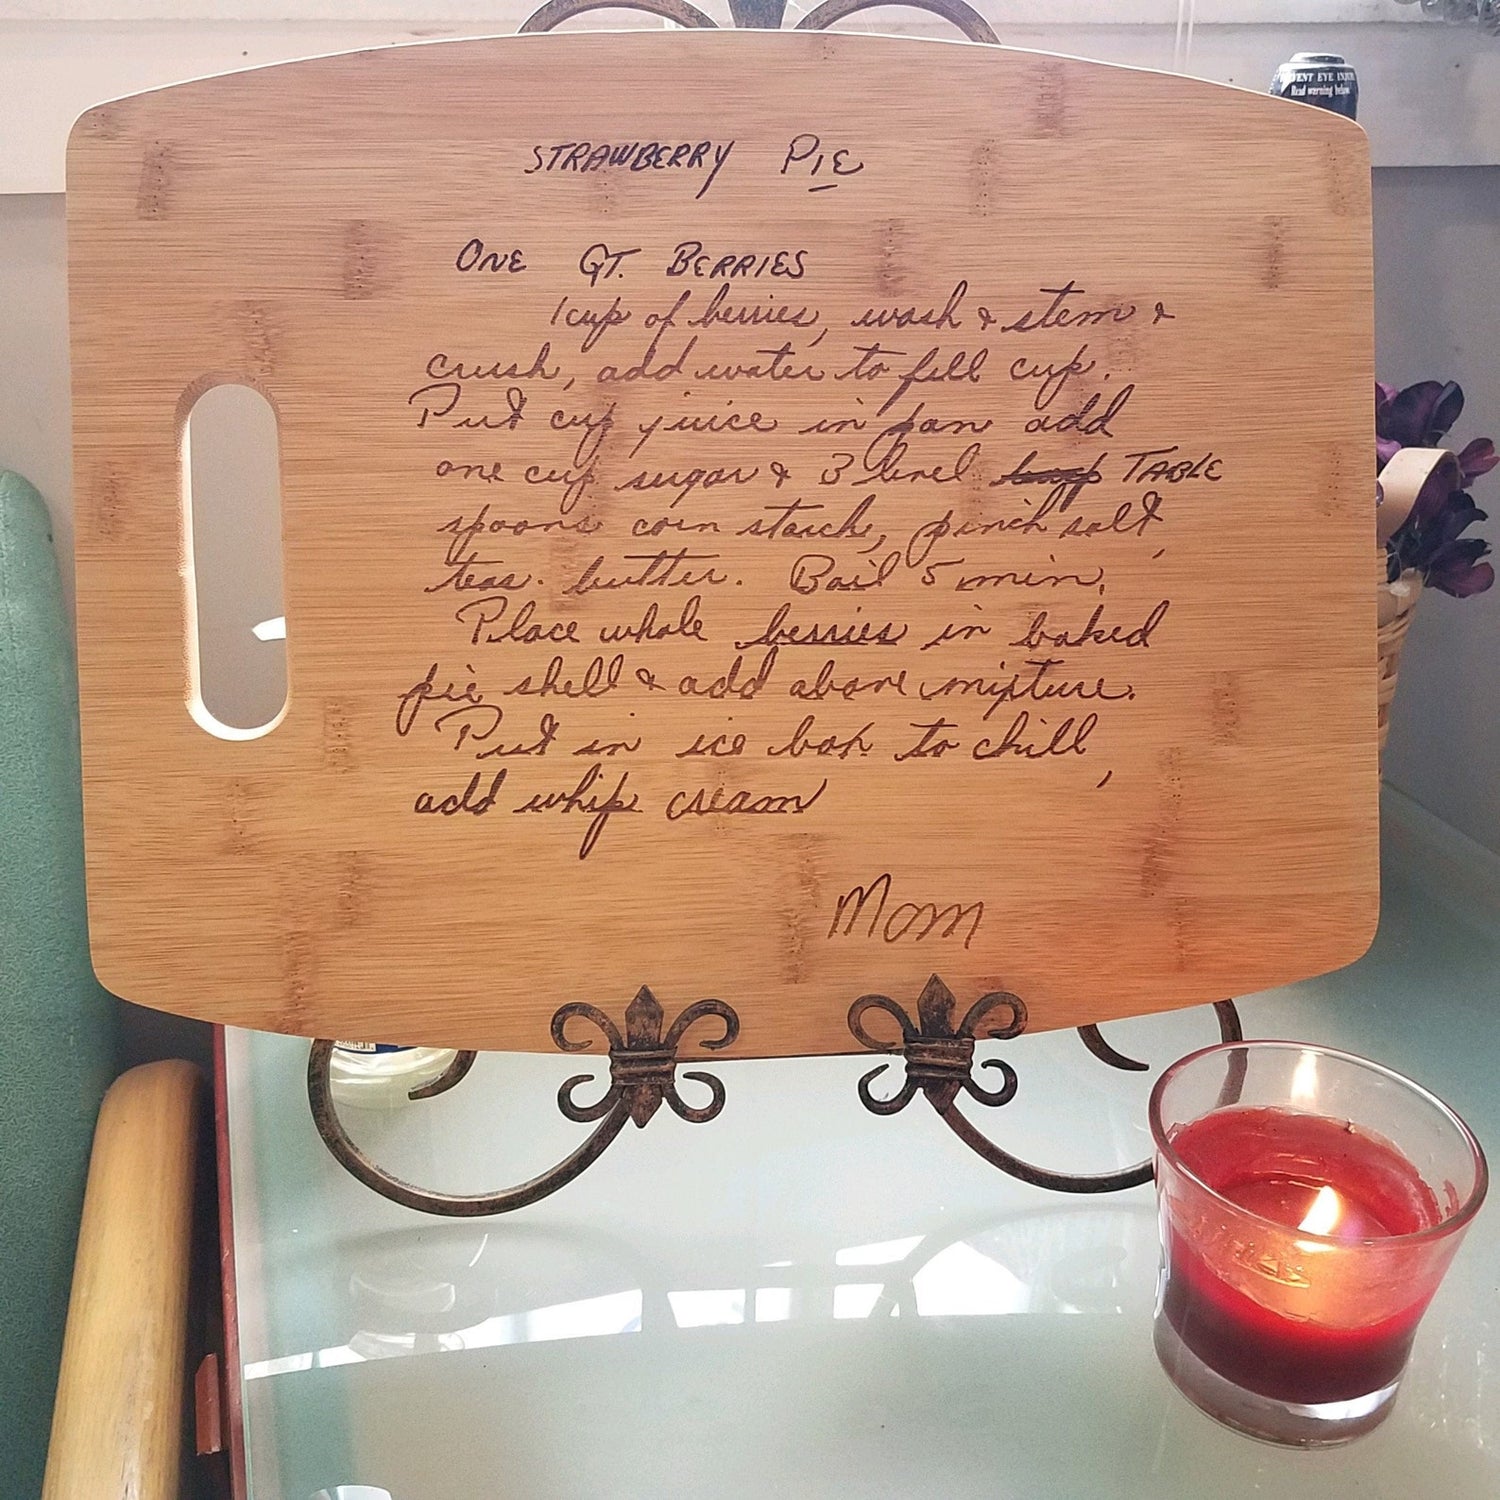 STRAWBERRY PIE
ONE QT. BERRIES
1 cup of berries, wash & stem &
crush, add water to fill cup.
Put cup juice in pan add
one cup sugar & 3 level TABLE
spoons corn starch, pinch salt,
teas. butter. Boil 5 min.
Place whole berries in baked
pie shell & add above mixture.
Put in ice box to chill,
add whip cream
Mom
Read warning below